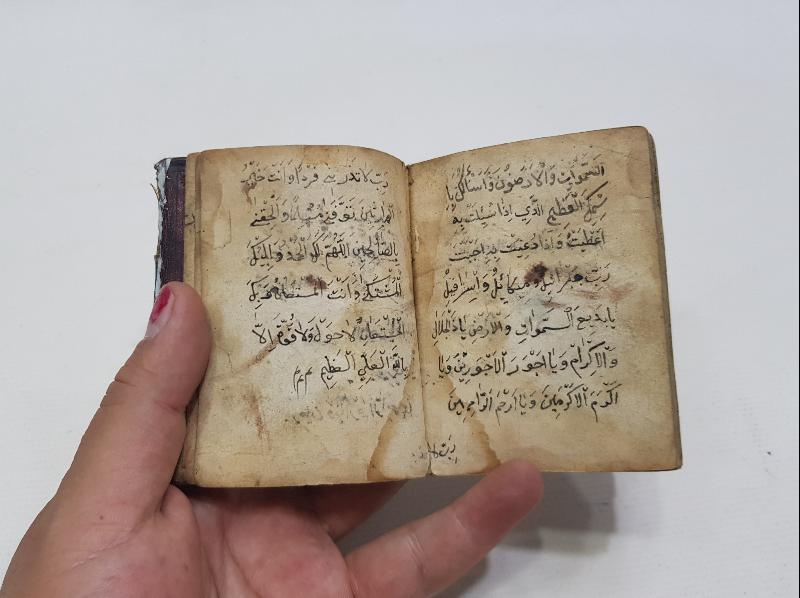 السموات والارضون واسألك با
سمك العظيم الذي اذا سئلت به
اعطيت واذا دعيت به اجبت
رب جبرائيل وميكائيل واسرافيل
يا بديع السموات والارض يا ذالجلال
والاكرام ويا اجود الاجودين ويا
اكرم الاكرمين ويا ارحم الراحمين
رب لا
رب لا تذرني فردا وانت خير
الوارثين توفني مسلما والحقني
بالصالحين اللهم لك الحمد واليك
المشتكى وانت المستعان وبك
المستعان لا حول ولا قوة الا
بالله العلي العظيم م م م